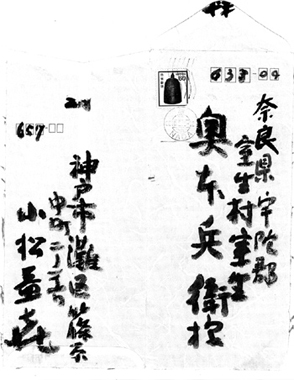 633-04
奈良県宇陀郡
室生村室生
奥本兵衛様
657
神戸市灘区篠原
中町二丁
小松益喜